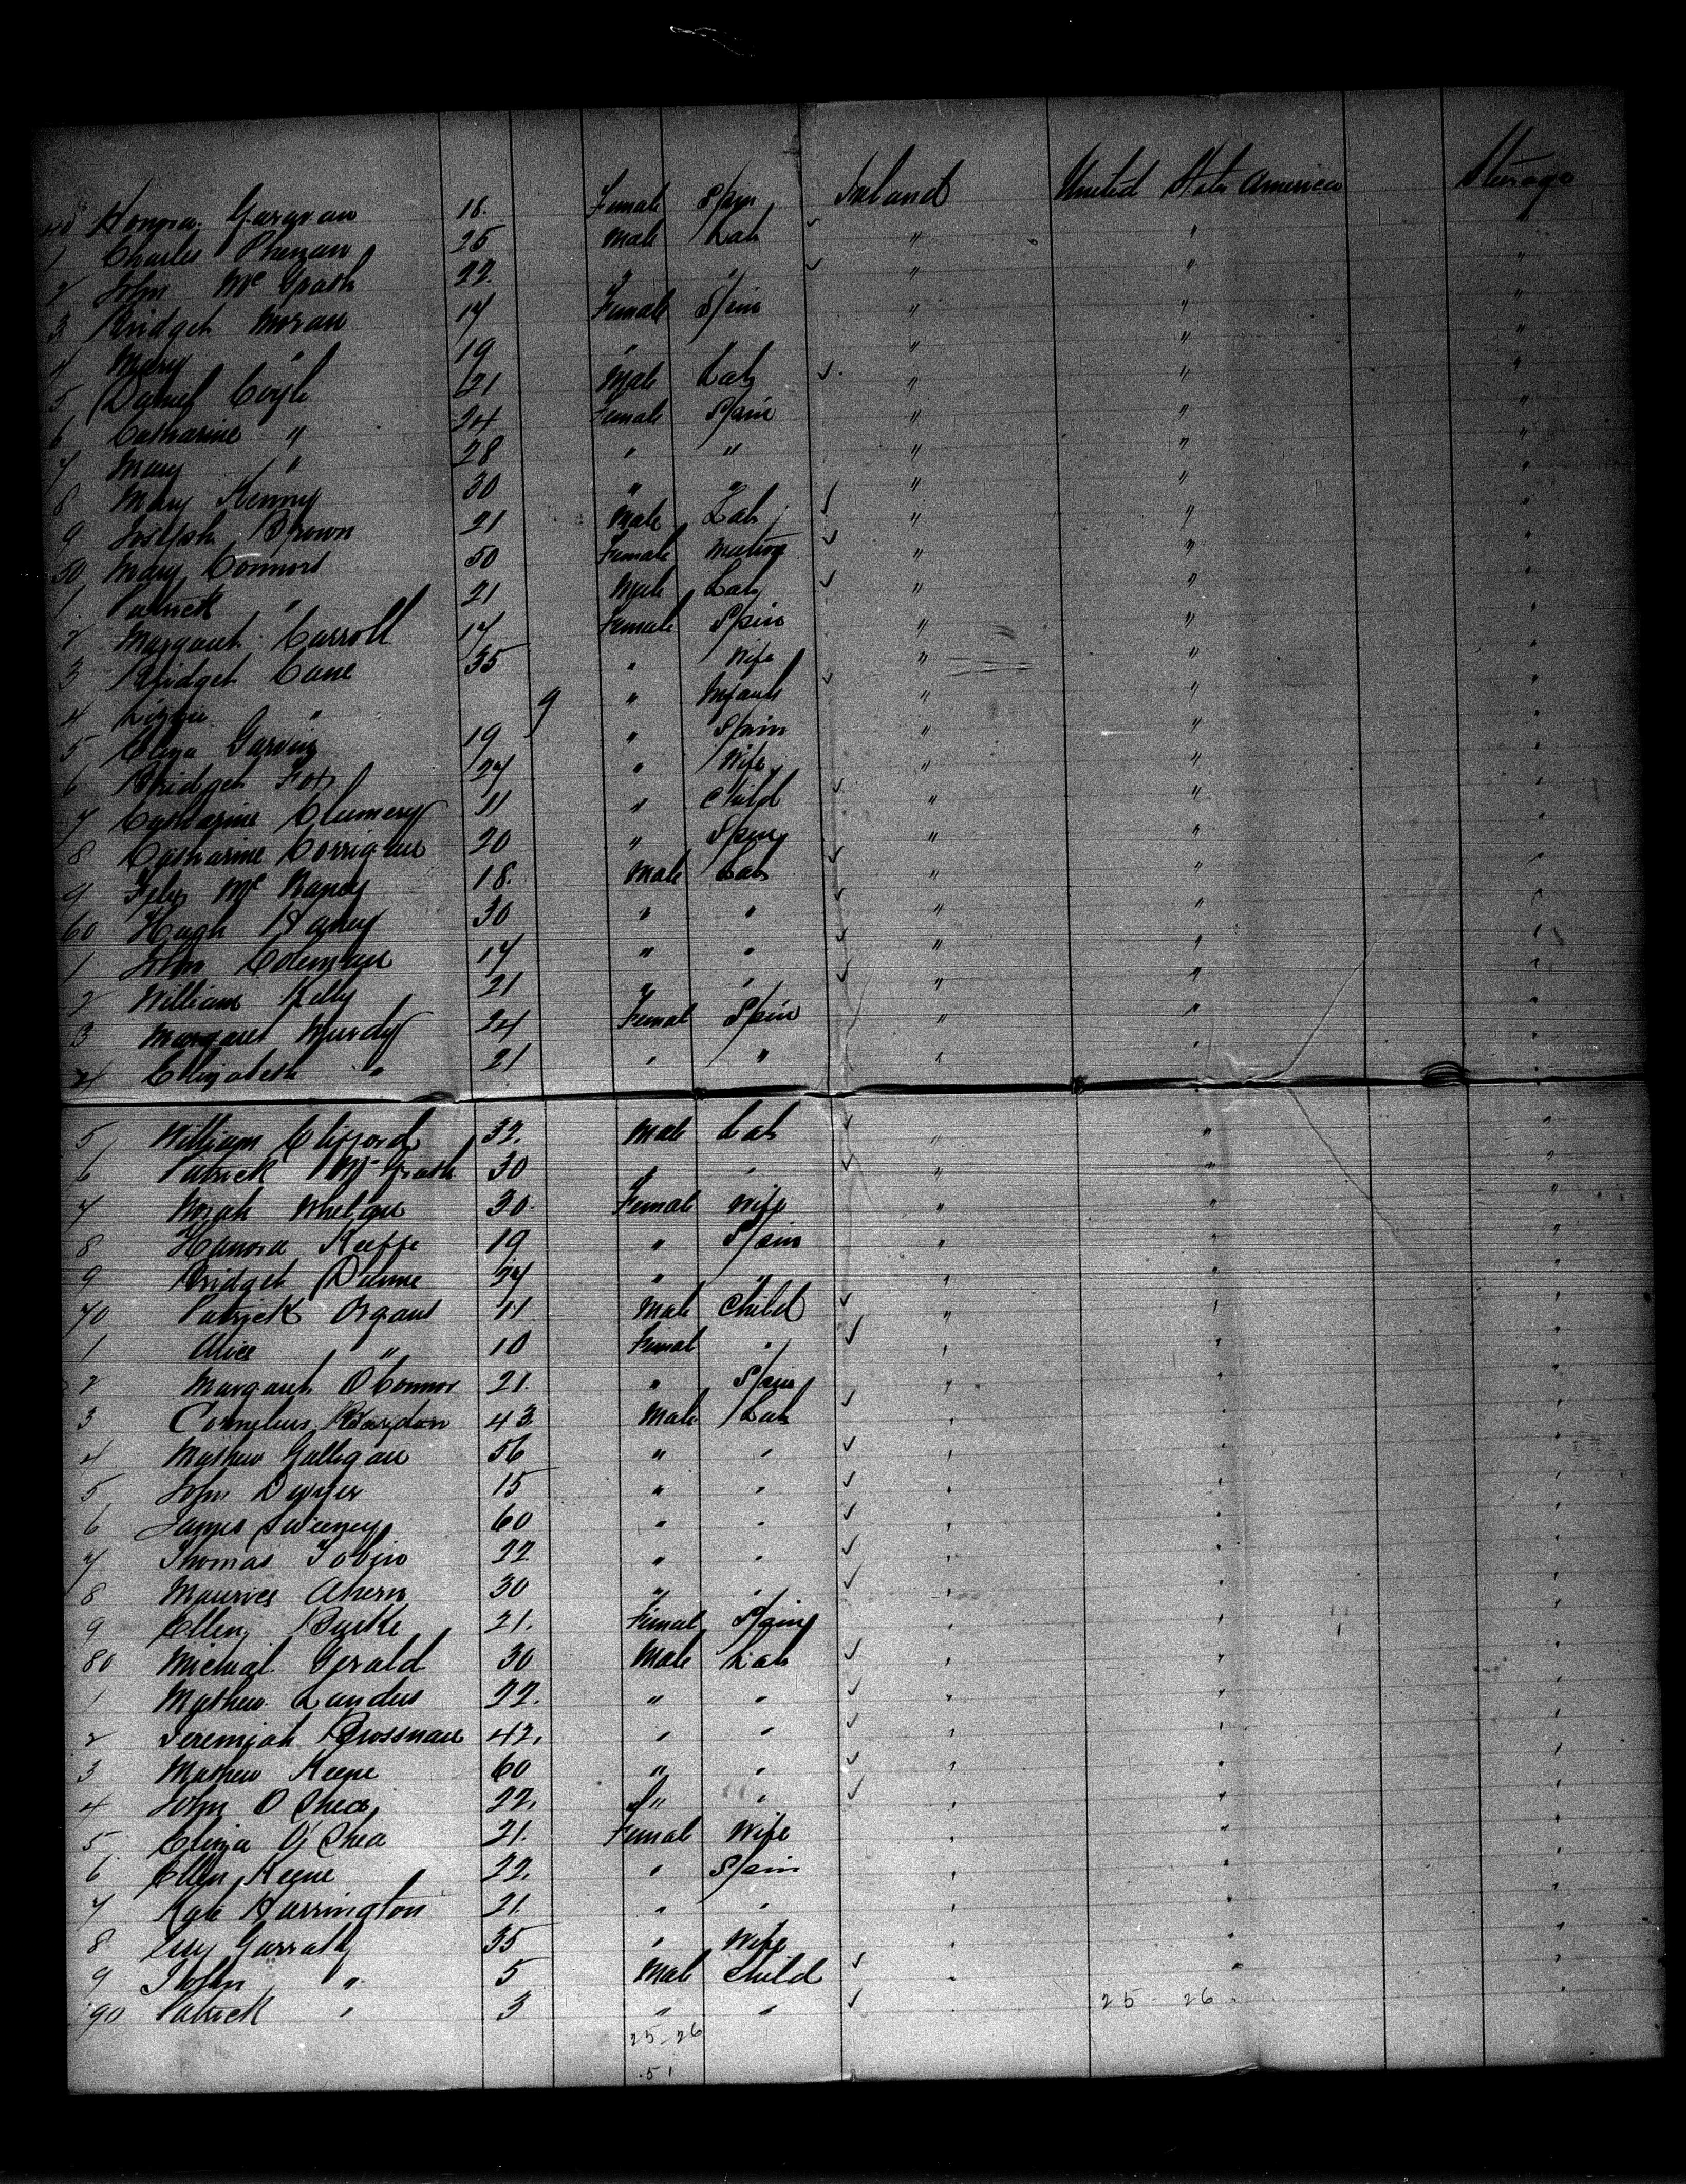 40 Honora Gargan 18. Female Spin Ireland United State America Steerage
1 Charles 25 Male Lab ✓ " " "
2 John McGrath 22. " " ✓ " " "
3 Bridget Moran 17 Female Spin " " "
4 Mary " 19 " " " "
5 Daniel Coyle 21 Male Lab ✓ " " "
6 Catharine " 24 Female Spin " " "
7 Mary " 28 " " " " "
8 Mary Kenny 30 " " " " "
9 Joseph Brown 21 Male Lab ✓ " " "
50 Mary Connors 50 Female Matron ✓ " " "
1. Patrick " 21 Male Lab ✓ " " "
2 Margaret Carroll 17 Female Spin " " "
3 Bridget Cane 35 " Wife " " "
4 Lizzie " 9 " Infant ✓ " " "
5 Eliza 19 " Spin " " "
6 Bridget Fox 27 " Wife " " "
7 Catharine 11 " Child ✓ " " "
8 Catharine Corrigan 20 " Spin " " "
9 Felix Mc 18. Male Lab ✓ " " "
60 Hugh 30 " " ✓ " " "
1 John Coleman 17 " " ✓ " " "
2 William Kelly 21 " " ✓ " " "
3 Margaret Murdy 24 Femal Spin " " "
4 Elizabeth " 21 " " " " "
5 William Clifford 32. Male Lab ✓ " " "
6 Patrick McGrath 30 " " ✓ " " "
7 Norah Whelan 30. Female Wife " " "
8 Hanora Keeffe 19 " Spin " " "
9 Bridget Dunne 27 " " " " "
70 Patrick Organt 11 Male Child ✓ " " "
1 Alice " 10 Femal " ✓ " " "
2 Margaret O'Connor 21. " Spin " " "
3 Cornelius 43 Male Lab ✓ " " "
4 Mathew Galligan 56 " " ✓ " " "
5 John Dwyer 15 " " ✓ " " "
6 James Sweeney 60 " " ✓ " " "
7 Thomas Tobin 22 " " ✓ " " "
8 Maurice Ahern 30 " " ✓ " " "
9 Ellen Burke 21. Femal Spin " " "
80 Micheal Gerald 30 Male Lab ✓ " " "
1 Mathew Landers 22. " " ✓ " " "
2 Jeremiah Brosnan 42. " " ✓ " " "
3 Mathew Keene 60 " " ✓ " " "
4 John O Shea 22. " " ✓ " " "
5 Eliza O Shea 21. Femal Wife " " "
6 Ellen Keene 22. " Spin " " "
7 Kate Harrington 21. " " " " "
8 Garratty 35 " Wife " " "
9 John " 5 Male Child ✓ " " "
90 Patrick " 3 " " ✓ " 25-26 "
25-26
51